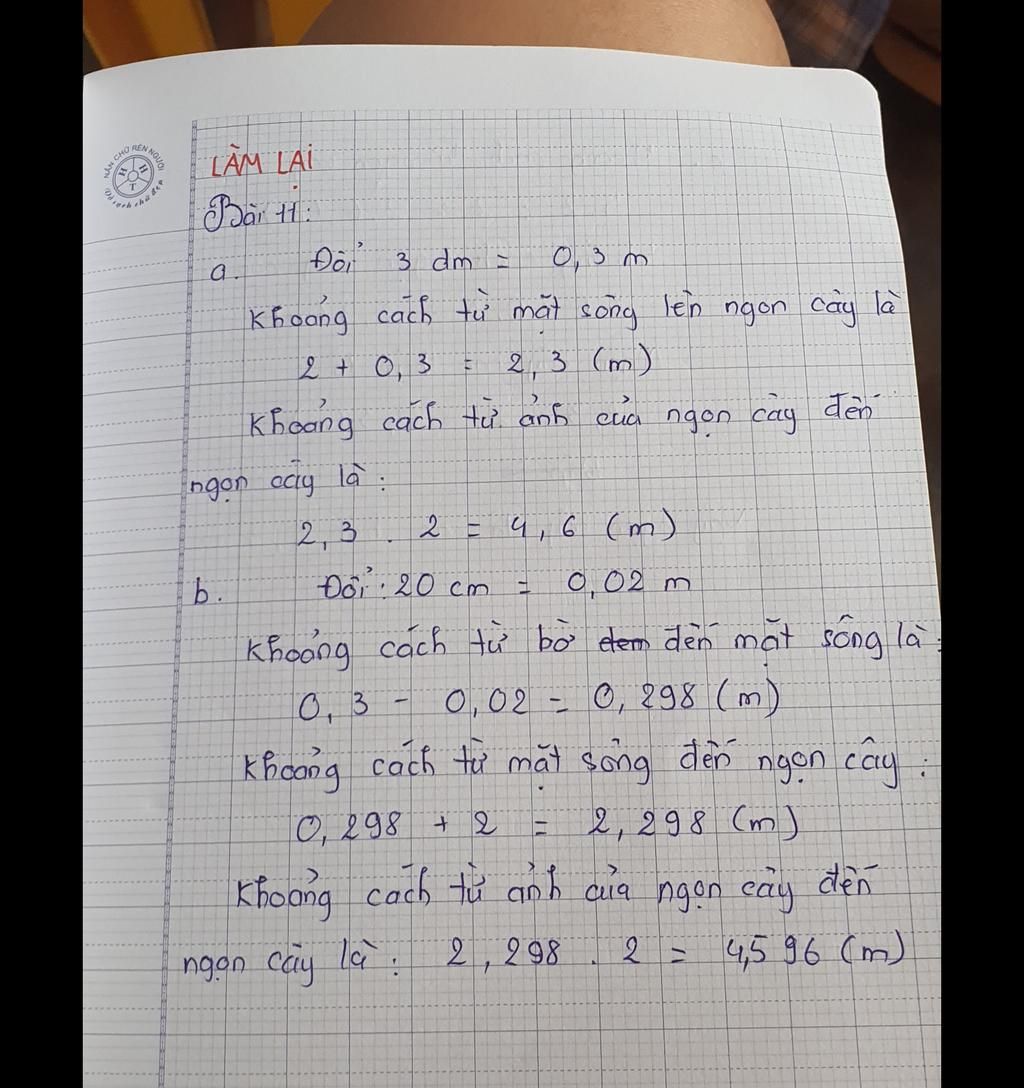 NẮN CHỮ RÈN NGƯỜI
H H T
Vở sạch chữ đẹp
LÀM LẠI
Bài 11:
a. Đổi 3 dm = 0,3 m
Khoảng cách từ mặt sông lên ngọn cây là
2 + 0,3 = 2,3 (m)
Khoảng cách từ ảnh của ngọn cây đến
ngọn cây là :
2,3 . 2 = 4,6 (m)
b. Đổi : 20 cm = 0,02 m
Khoảng cách từ bờ đem đến mặt sông là :
0,3 - 0,02 = 0,298 (m)
Khoảng cách từ mặt sông đến ngọn cây :
0,298 + 2 = 2,298 (m)
Khoảng cách từ ảnh của ngọn cây đến
ngọn cây là : 2,298 . 2 = 4,596 (m)